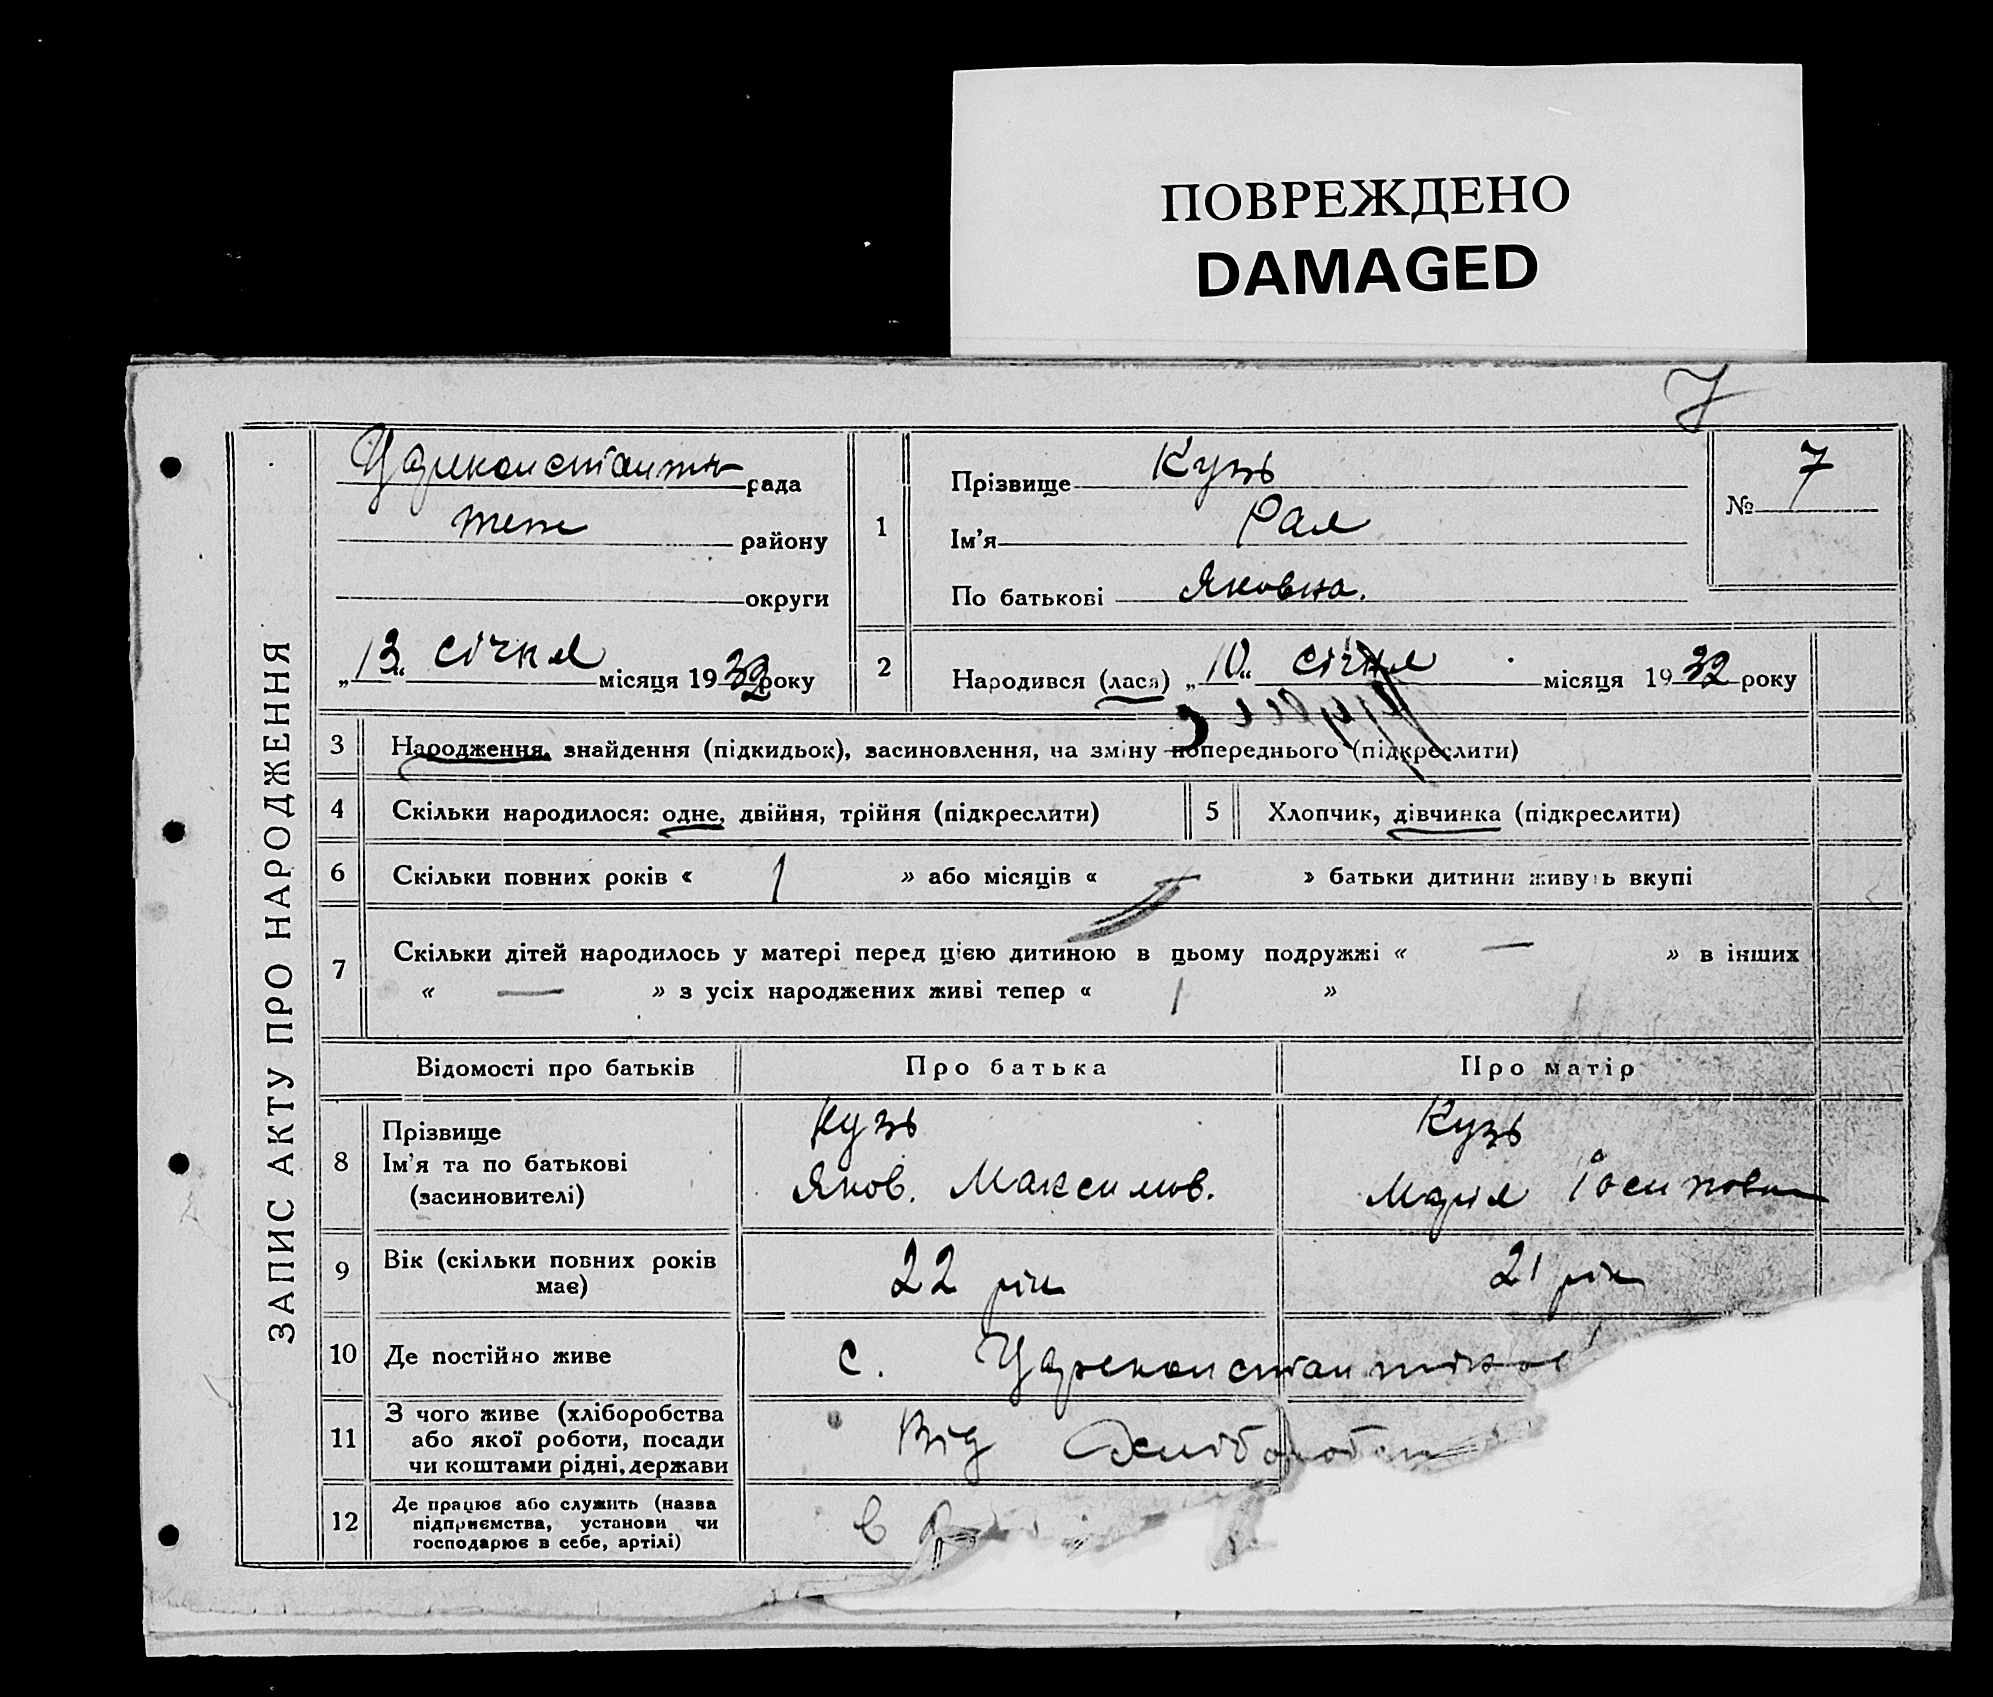 ПОВРЕЖДЕНО
DAMAGED
7
ЗАПИС АКТУ ПРО НАРОДЖЕННЯ
Цареконстант рада
теж району
округи
„13“ січня місяця 1932 року
1
Прізвище Кузь
Ім'я Рая
По батькові Яковна.
№ 7
2
Народився (лася) „10“ січня місяця 1932 року
3 Народження, знайдення (підкидьок), засиновлення, на зміну попереднього (підкреслити)
4 Скільки народилося: одне, двійня, трійня (підкреслити)
5 Хлопчик, дівчинка (підкреслити)
6 Скільки повних років « 1 » або місяців « » батьки дитини живуть вкупі
7 Скільки дітей народилось у матері перед цією дитиною в цьому подружжі « — » в інших
« — » з усіх народжених живі тепер « 1 »
Відомості про батьків Про батька Про матір
8 Прізвище
Ім'я та по батькові
(засиновителі)
Кузь
Яков. Максимов.
Кузь
Мария Іосиповна
9 Вік (скільки повних років
має)
22 рік
21 рік
10 Де постійно живе
с. Цареконстантінов
11 З чого живе (хліборобства
або якої роботи, посади
чи коштами рідні, держави
Від
12 Де працює або служить (назва
підприємства, установи чи
господарює в себе, артілі)
в